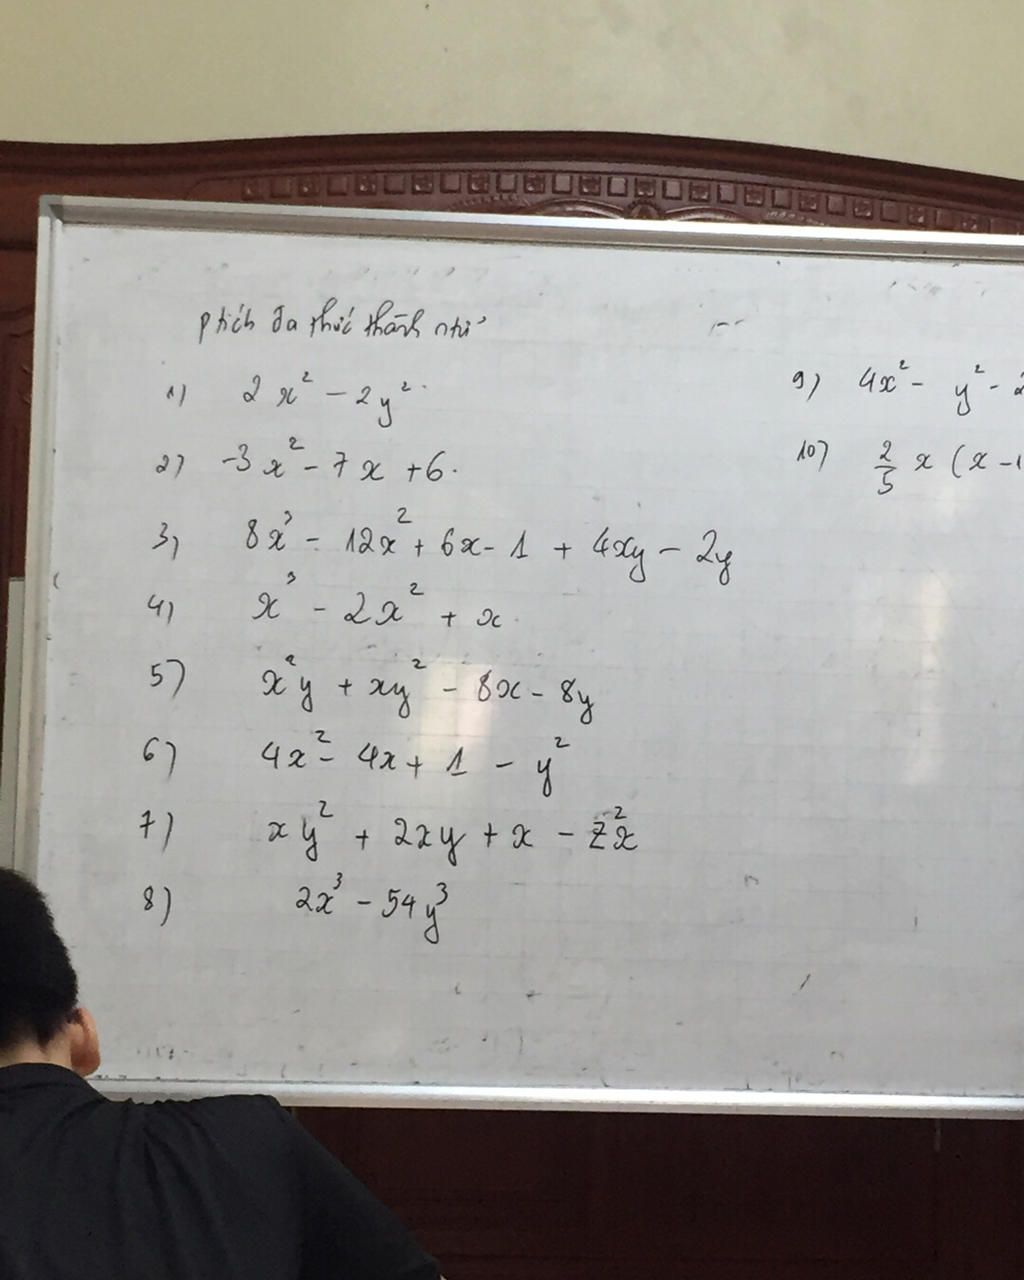 ptích đa thức thành ntử
1) 2x² - 2y²
2) -3x² - 7x + 6.
3) 8x³ - 12x² + 6x - 1 + 4xy - 2y
4) x³ - 2x² + x
5) x²y + xy² - 8x - 8y
6) 4x² - 4x + 1 - y²
7) xy² + 2xy + x - z²x
8) 2x³ - 54y³
9) 4x² - y² - 2
10) 2/5 x (x - 1